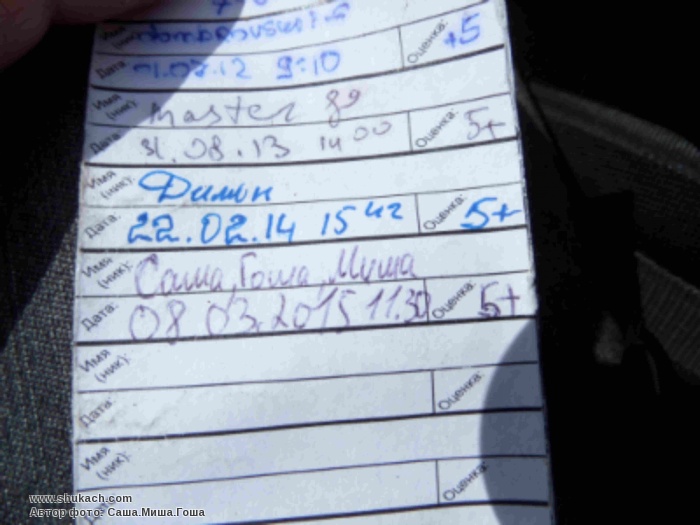 Имя (ник):
Дата: 01.07.12 9:10 Оценка: +5
Имя (ник): Master 89
Дата: 31.08.13 14 00 Оценка: 5+
Имя (ник): Димон
Дата: 22.02.14 15 42 Оценка: 5+
Имя (ник): Саша, Гоша, Миша
Дата: 08 03.2015 11.30 Оценка: 5+
Имя (ник):
Дата: Оценка:
Имя (ник):
Дата: Оценка:
www.shukach.com
Автор фото: Саша.Миша.Гоша